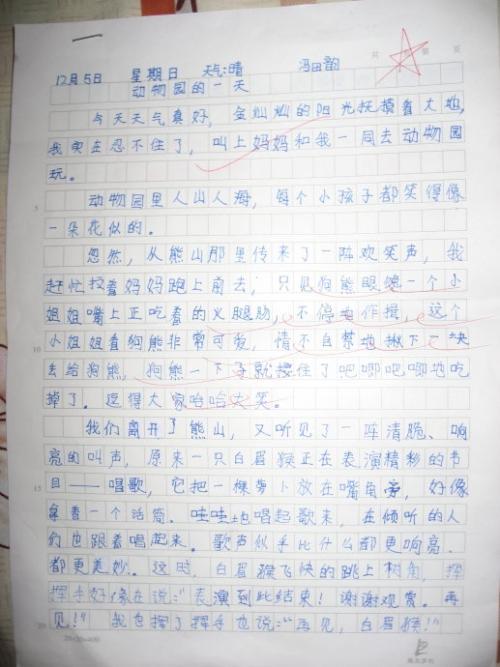 共 页 第 页
12月5日 星期日 天气:晴 冯田韵
动物园的一天
今天天气真好，金灿灿的阳光抚摸着大地，
我实在忍不住了，叫上妈妈和我一同去动物园
玩。
动物园里人山人海，每个小孩子都笑得像
5
一朵花似的。
忽然，从熊山那里传来了一阵欢笑声，我
赶忙拉着妈妈跑上前去，只见狗熊眼馋一个小
姐姐嘴上正吃着的火腿肠，不停地作揖，这个
10
小姐姐看狗熊非常可爱，情不自禁地揪下一块
丢给狗熊，狗熊一下子就接住了吧唧吧唧地吃
掉了。逗得大家哈哈大笑。
我们离开了熊山，又听见了一阵清脆、响
亮的叫声，原来一只白眉猴正在表演精彩的节
15
目——唱歌，它把一棵萝卜放在嘴角旁，好像
拿着一个话筒。哇哇地唱起歌来，在倾听的人
们也跟着唱起来。歌声似乎比什么都更响亮，
都更美妙。这时，白眉猴飞快的跳上树角，挥
挥手好像在说:“表演到此结束！谢谢观赏。再
20
见！”我也挥了挥手也说:“再见，白眉猴！”
20×20=400